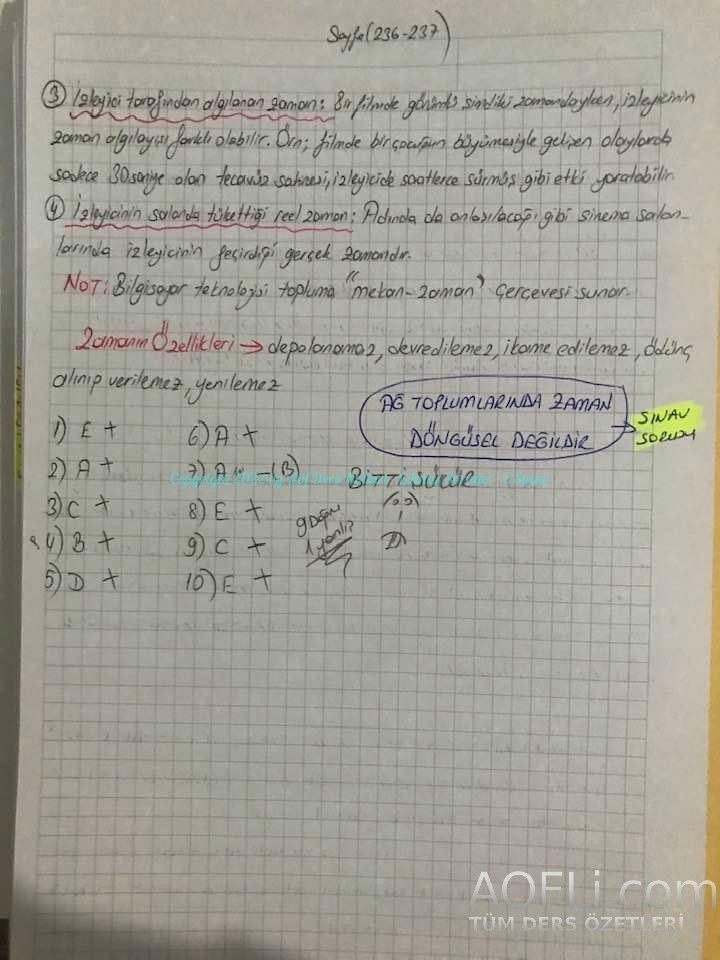 Sayfa (236-237)
③ İzleyici tarafından algılanan zaman: Bir filmde görüntü şimdiki zamandayken, izleyicinin
zaman algılayışı farklı olabilir. Örn; filmde bir çocuğun büyümesiyle gelişen olaylarda
sadece 30 saniye olan tecavüz sahnesi, izleyicide saatlerce sürmüş gibi etki yaratabilir.
④ İzleyicinin salonda tükettiği reel zaman: Adında da anlaşılacağı gibi sinema salon-
larında izleyicinin geçirdiği gerçek zamandır.
NOT: Bilgisayar teknolojisi topluma "mekan-zaman" çerçevesi sunar.
Zamanın Özellikleri → depolanamaz, devredilemez, ikame edilemez, ödünç
alınıp verilemez, yenilemez
AĞ TOPLUMLARINDA ZAMAN
DÖNGÜSEL DEĞİLDİR
SINAV
SORUSU
1) E + 6) A +
2) A + 7) A - (B) BİTTİ ŞÜKÜR
3) C + 8) E +
4) B + 9) C +
5) D + 10) E +
9 Doğru
1 yanlış
AOFLi.com
TÜM DERS ÖZETLERİ